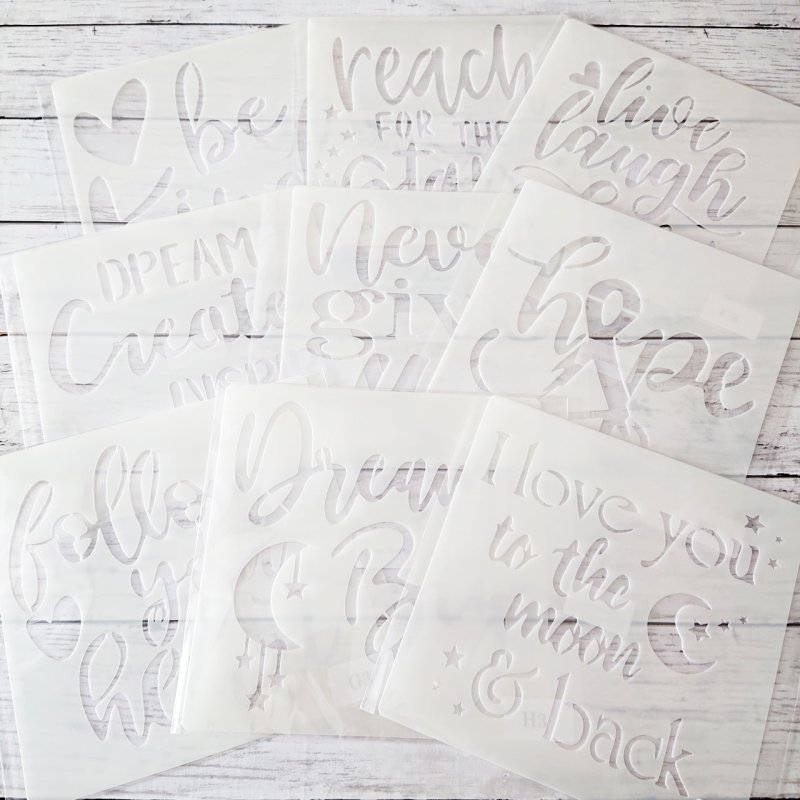 be
reach
FOR THE
live
laugh
DREAM
Create
INSPI
Neve
giv
hope
follo
yo
he
Dream
B
I love you
to the
moon
& back
H3